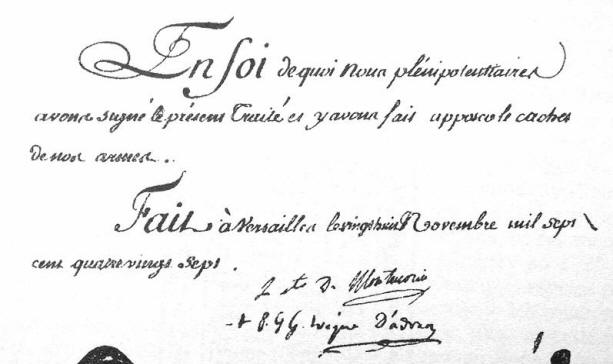 En foi de quoi Nous plénipotentiaires
avons signé le présent Traité et y avons fait apposer le cachet
de nos armes.
Fait à Versailles le vingt huit Novembre mil sept
cent quatre vingt sept.
cte De Montmorin
+ P. G. G. évêque D'adran